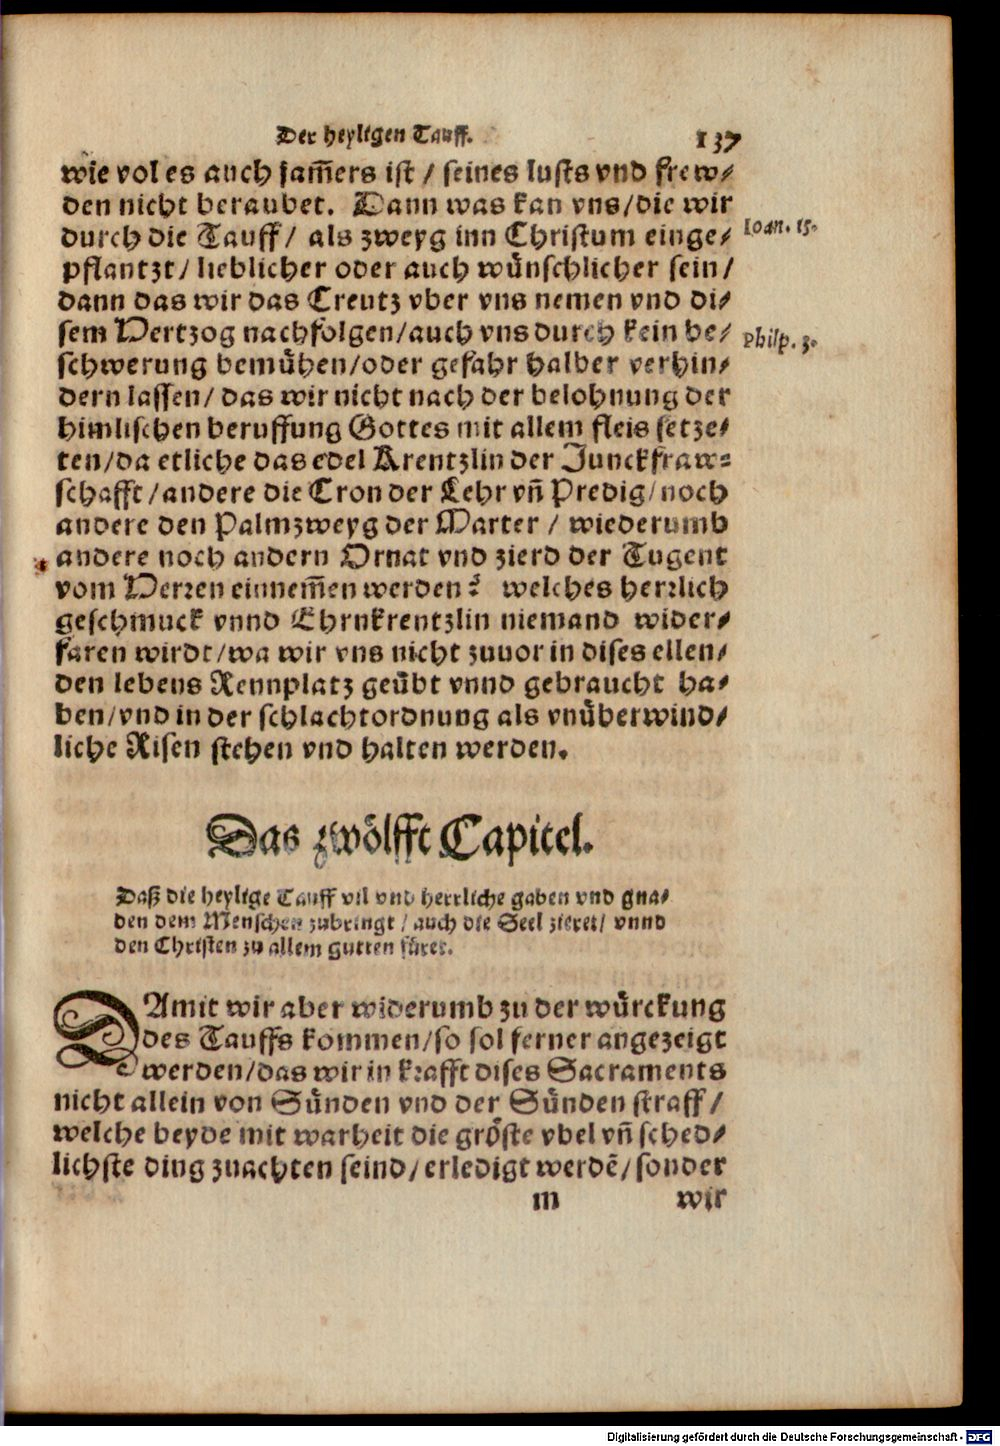 Der heyligen Tauff. 137
wie vol es auch jam̃ers ist / seines lusts vnd frew⸗
den nicht beraubet. Dann was kan vns/die wir
durch die Tauff/ als zweyg inn Christum einge⸗
pflantzt/ lieblicher oder auch wünschlicher sein/
dann das wir das Creutz vber vns nemen vnd di⸗
sem Hertzog nachfolgen/auch vns durch kein be⸗
schwerung bemühen/oder gefahr halber verhin⸗
dern lassen/ das wir nicht nach der belohnung der
himlischen beruffung Gottes mit allem fleis setze⸗
ten/da etliche das edel Krentzlin der Junckfraw⸗
schafft/andere die Cron der Lehr vñ Predig/noch
andere den Palmzweyg der Marter / wiederumb
andere noch andern Ornat vnd zierd der Tugent
vom Herren einnem̃en werden? welches herrlich
geschmuck vnnd Ehrnkrentzlin niemand wider⸗
faren wirdt/wa wir vns nicht zuuor in dises ellen⸗
den lebens Rennplatz geübt vnnd gebraucht ha⸗
ben/vnd in der schlachtordnung als vnüberwind⸗
liche Risen stehen vnd halten werden.
Ioan. 15.
Philp. 3.
Das zwölfft Capitel.
Daß die heylige Tauff vil vnd herrliche gaben vnd gna⸗
den dem Menschen zubringt / auch die Seel zieret/ vnnd
den Christen zu allem gutten füret.
DAmit wir aber widerumb zu der würckung
des Tauffs kommen/so sol ferner angezeigt
werden/das wir in krafft dises Sacraments
nicht allein von Sünden vnd der Sünden straff/
welche beyde mit warheit die gröste vbel vñ sched⸗
lichste ding zuachten seind/erledigt werdē/sonder
m wir
Digitalisierung gefördert durch die Deutsche Forschungsgemeinschaft - DFG